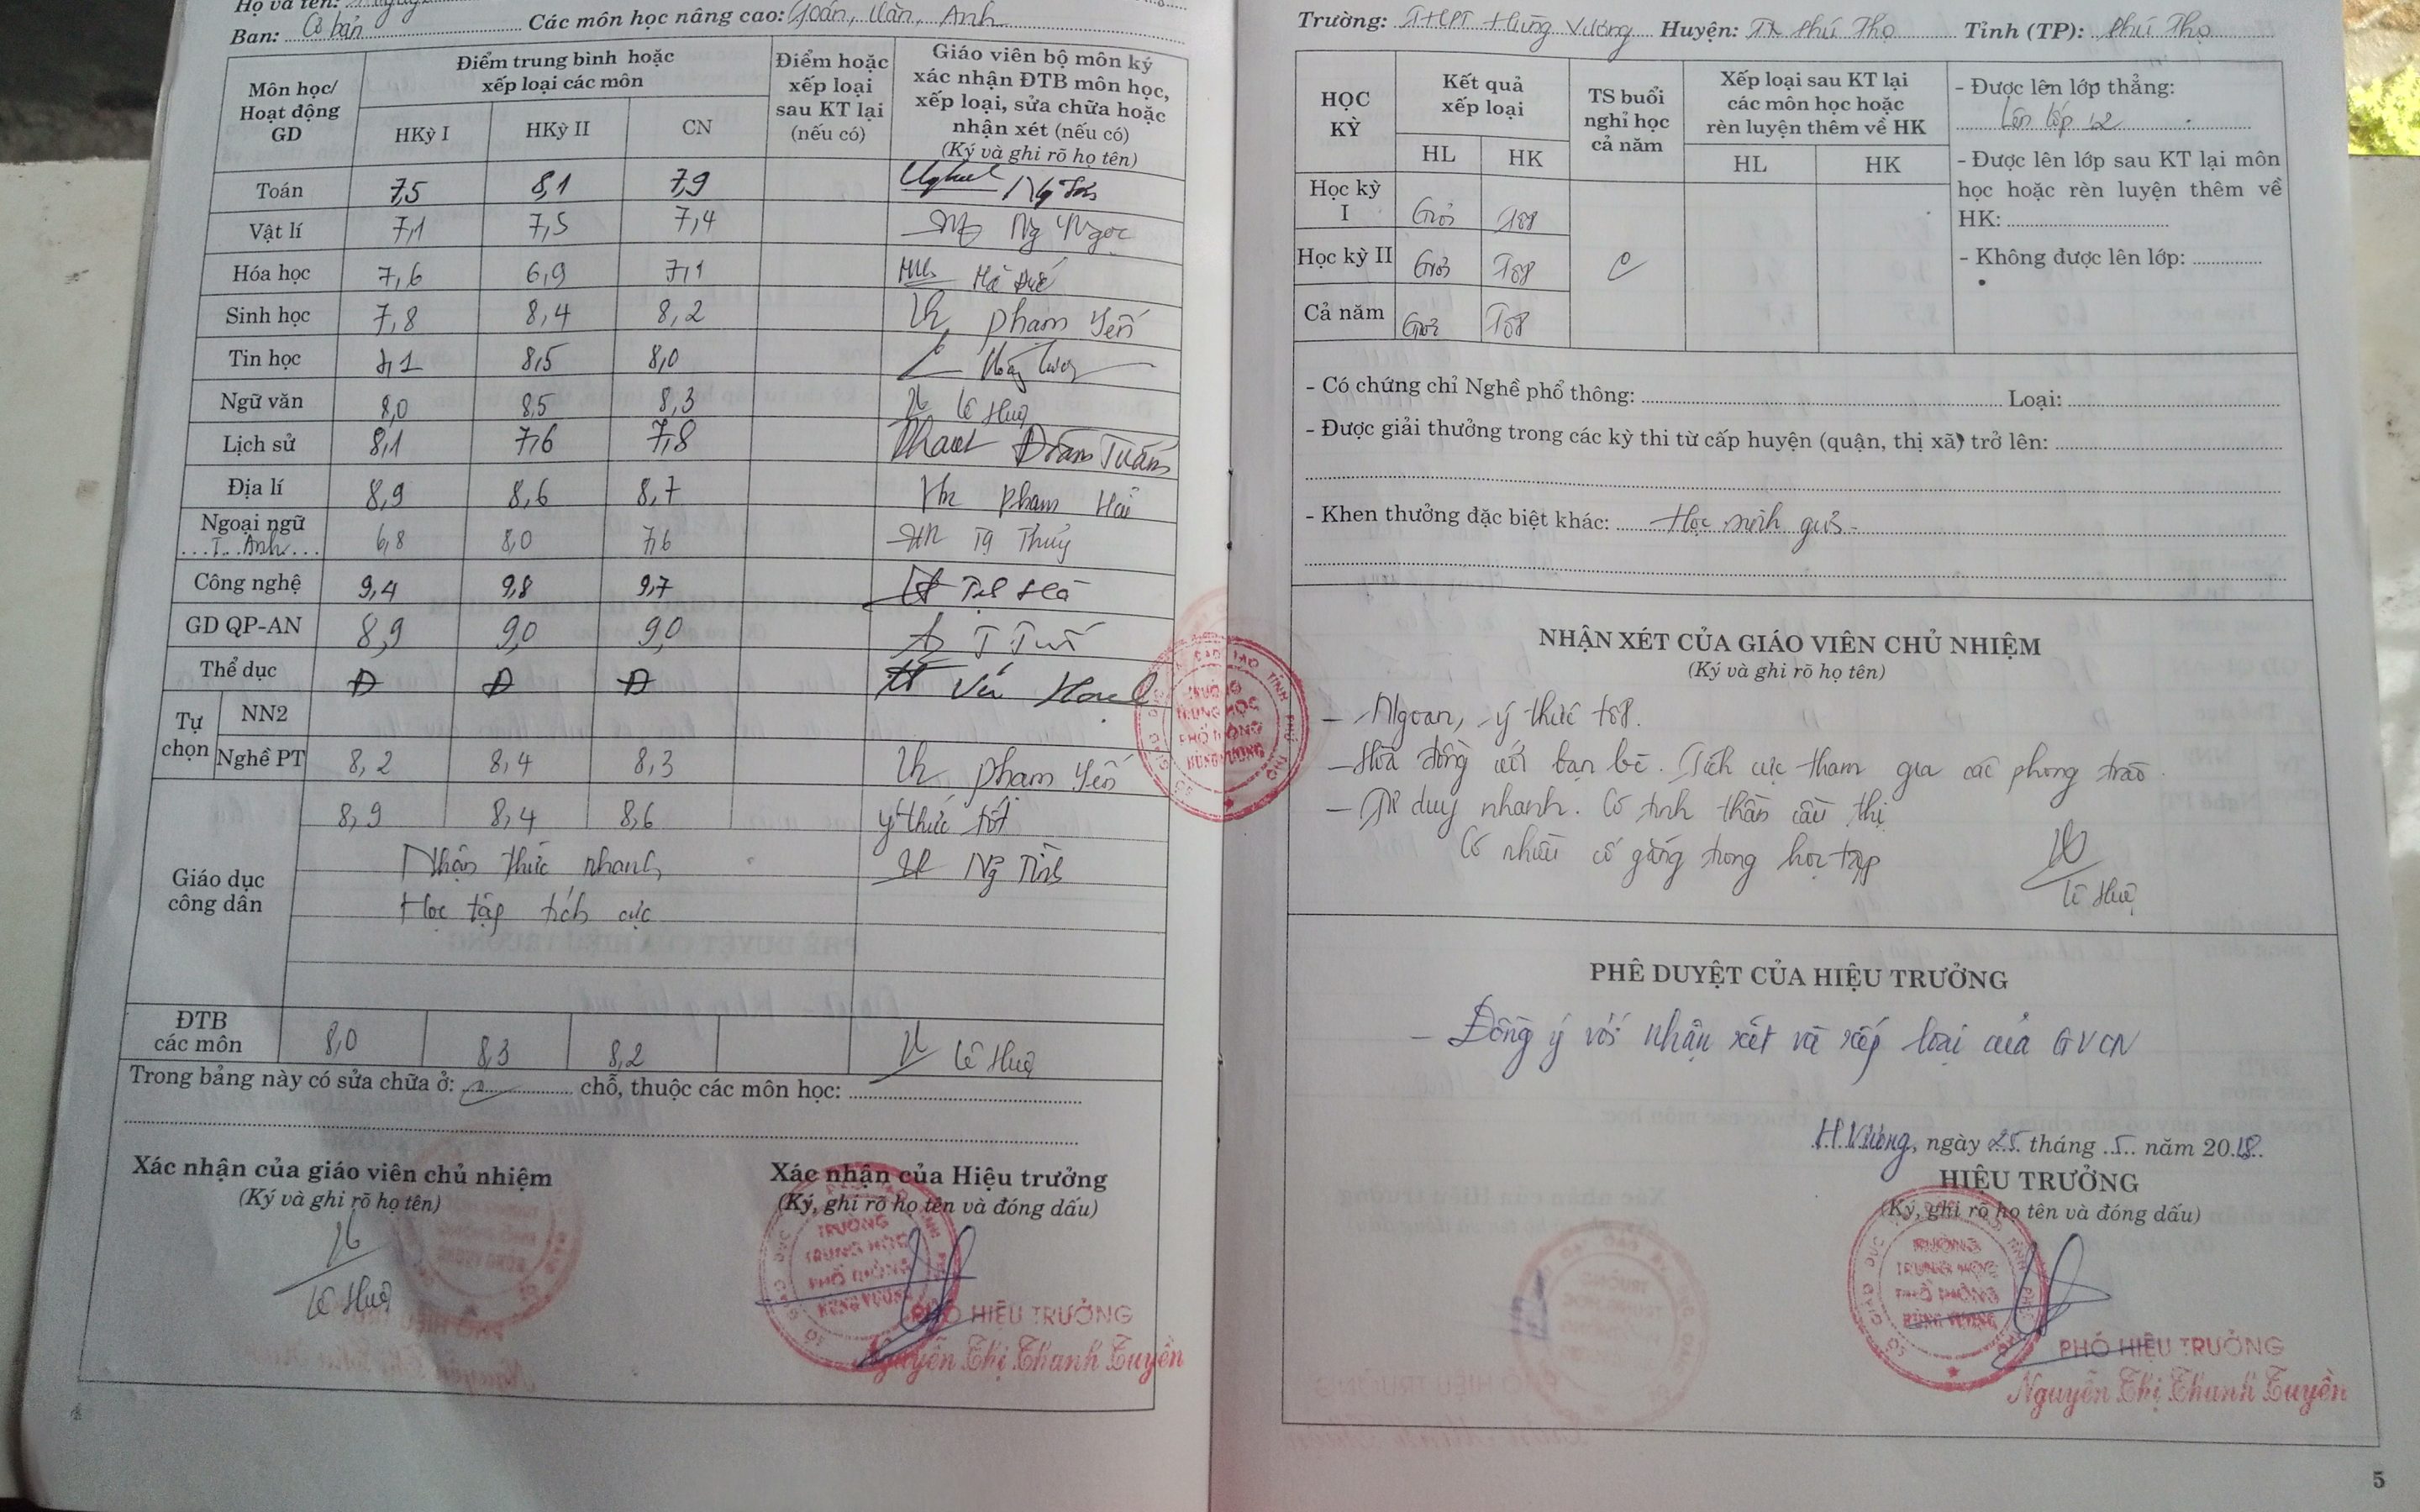 Họ và tên:
Ban: Cơ bản Các môn học nâng cao: Toán, Văn, Anh
Môn học/ Hoạt động GD
Điểm trung bình hoặc xếp loại các môn
HKỳ I HKỳ II CN
Điểm hoặc xếp loại sau KT lại (nếu có)
Giáo viên bộ môn ký xác nhận ĐTB môn học, xếp loại, sửa chữa hoặc nhận xét (nếu có)
(Ký và ghi rõ họ tên)
Toán 7,5 8,1 7,9
Vật lí 7,1 7,5 7,4 Ng Ngọc
Hóa học 7,6 6,9 7,1 Hà Đức
Sinh học 7,8 8,4 8,2 Phạm Yến
Tin học 7,1 8,5 8,0
Ngữ văn 8,0 8,5 8,3 Lê Huệ
Lịch sử 8,1 7,6 7,8 Đàm Tuấn
Địa lí 8,9 8,6 8,7 Phạm Hải
Ngoại ngữ
T. Anh 6,8 8,0 7,6 Tạ Thủy
Công nghệ 9,4 9,8 9,7
GD QP-AN 8,9 9,0 9,0
Thể dục Đ Đ Đ
Tự chọn
NN2
Nghề PT 8,2 8,4 8,3 Phạm Yến
Giáo dục công dân
8,9 8,4 8,6 ý thức tốt
Nhận thức nhanh
Học tập tích cực
ĐTB các môn 8,0 8,3 8,2 Lê Huệ
Trong bảng này có sửa chữa ở: chỗ, thuộc các môn học:
Xác nhận của giáo viên chủ nhiệm
(Ký và ghi rõ họ tên)
Lê Huệ
Xác nhận của Hiệu trưởng
(Ký, ghi rõ họ tên và đóng dấu)
TRƯỜNG
TRUNG HỌC
PHỔ THÔNG
HÙNG VƯƠNG
PHÓ HIỆU TRƯỞNG
Nguyễn Thị Thanh Tuyền
Trường: THPT Hùng Vương Huyện: TX Phú Thọ Tỉnh (TP): Phú Thọ
HỌC KỲ
Kết quả xếp loại
HL HK
TS buổi nghỉ học cả năm
Xếp loại sau KT lại các môn học hoặc rèn luyện thêm về HK
HL HK
- Được lên lớp thẳng:
Lên lớp 12
- Được lên lớp sau KT lại môn học hoặc rèn luyện thêm về HK:
- Không được lên lớp:
Học kỳ I Giỏi Tốt
Học kỳ II Giỏi Tốt
Cả năm Giỏi Tốt
- Có chứng chỉ Nghề phổ thông: Loại:
- Được giải thưởng trong các kỳ thi từ cấp huyện (quận, thị xã) trở lên:
- Khen thưởng đặc biệt khác: Học sinh giỏi
NHẬN XÉT CỦA GIÁO VIÊN CHỦ NHIỆM
(Ký và ghi rõ họ tên)
- Ngoan, ý thức tốt.
- Hòa đồng với bạn bè. Tích cực tham gia các phong trào.
- Tư duy nhanh. Có tinh thần cầu thị
Có nhiều cố gắng trong học tập
Lê Huệ
PHÊ DUYỆT CỦA HIỆU TRƯỞNG
- Đồng ý với nhận xét và xếp loại của GVCN
H.Vương, ngày 25 tháng 5 năm 2018
HIỆU TRƯỞNG
(Ký, ghi rõ họ tên và đóng dấu)
TRƯỜNG
TRUNG HỌC
PHỔ THÔNG
HÙNG VƯƠNG
PHÓ HIỆU TRƯỞNG
Nguyễn Thị Thanh Tuyền
5